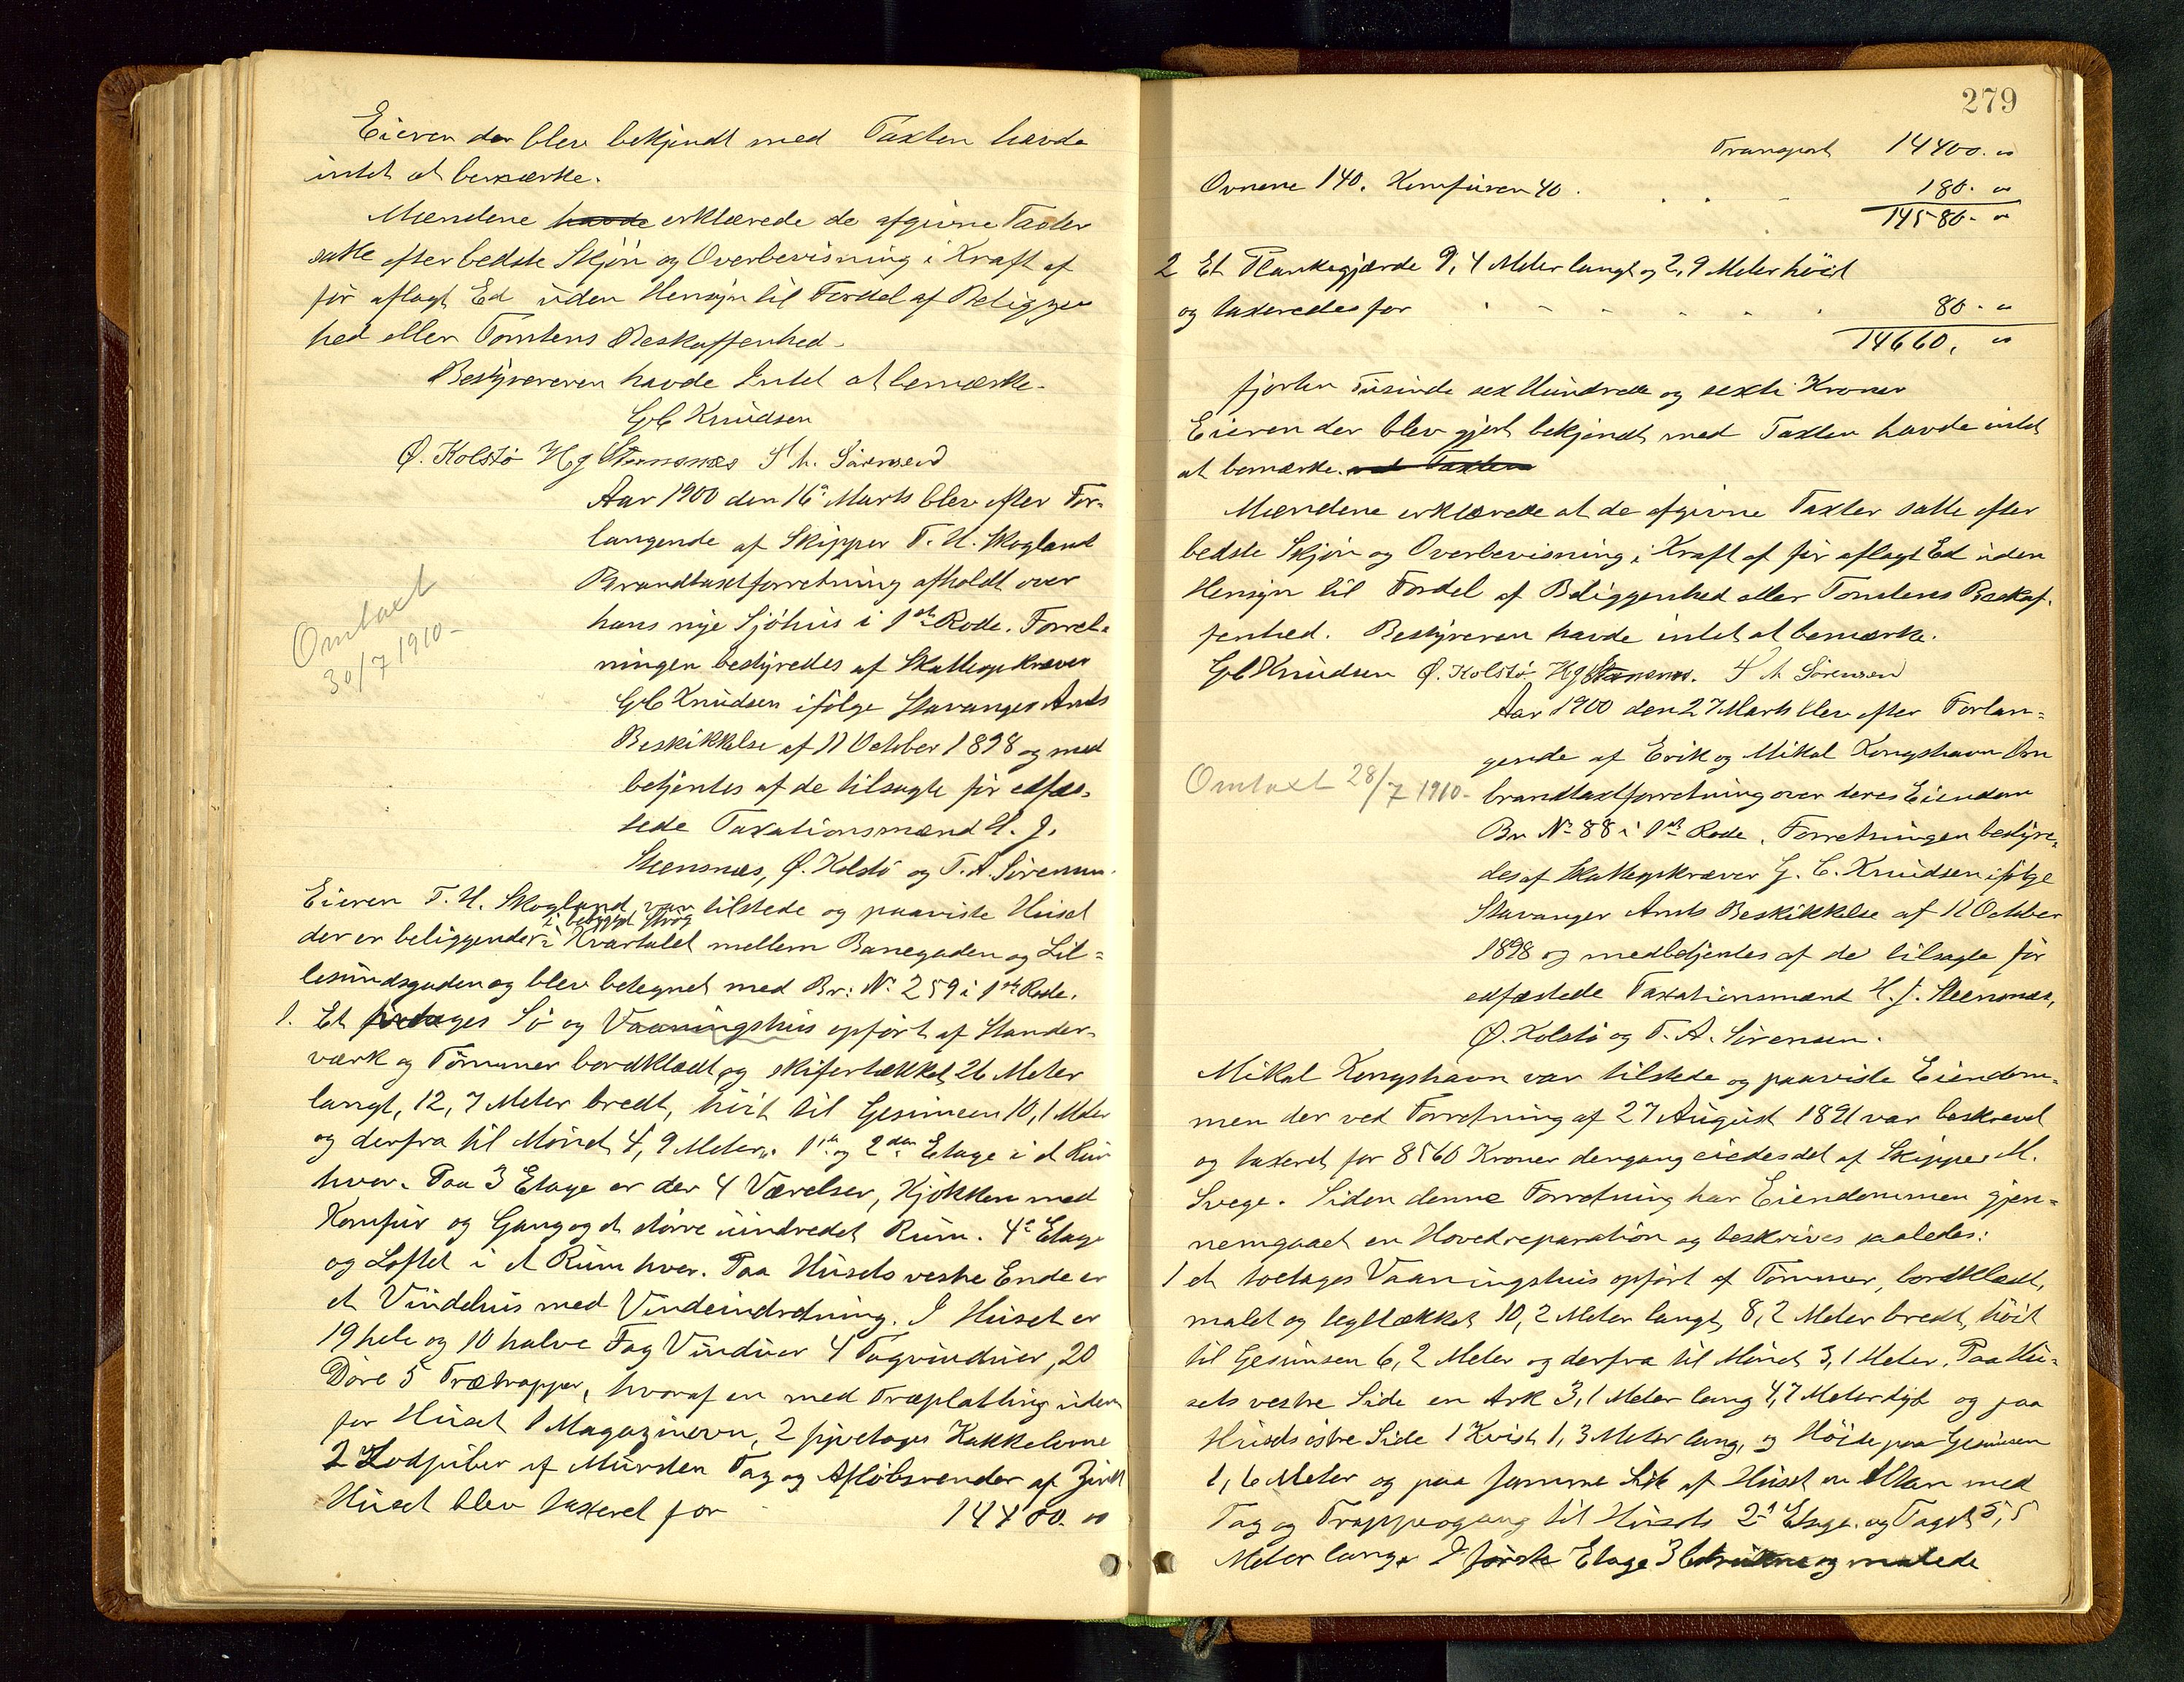 Eieren der blev bekjendt med Taxten havde
intet at bemærke.
Mændene havde erklærede de afgivne Taxter
satte efter bedste Skjøn og Overbevisning i Kraft af
før aflagt Ed uden Hensyn til Fordel af Beliggen
hed eller Tomtens Beskaffenhed.
Bestyreren havde Intet at bemærke.
G C Knudsen
Ø. Kolstø H J Steensnæs T A. Sørensen
Aar 1900 den 16de Marts blev efter For-
langende af Skipper T. H. Skogland
Brandtaxtforretning afholdt over
hans nye Sjøhus i 1ste Rode. Forret-
ningen bestyredes af Skatteopkræver
G C Knudsen ifølge Stavanger Amts
Beskikkelse af 11 October 1898 og med
betjentes af de tilsagte før edfæs-
tede Taxationsmænd H. J.
Steensnæs, Ø. Kolstø og T. A. Sørensen.
Omtaxt
30/7 1910-
Eieren T. H. Skogland var tilstede og paaviste Huset
i bebygget Strøg
der er beliggende i Kvartalet mellem Banegaden og Lil=
lesundsgaden og blev betegnet med Br: No 259 i 1ste Rode.
1. Et firetages Sø og Vaaningshus opført af Stander-
værk og Tømmer bordklædt og skifertækket 26 Meter
langt, 12,7 Meter bredt, høit til Gesimsen 10,1 Meter
og derfra til Mønet 4,9 Meter. 1ste og 2den Etage i et Rum
hver. Paa 3 Etage er der 4 Værelser, Kjøkken med
Komfur og Gang og et større uindredet Rum. 4de Etage
og Loftet i et Rum hver. Paa Husets vestre Ende er
et Vindehus med Vindeindretning. I Huset er
19 hele og 10 halve Fag Vinduer 4 Tagvinduer, 20
Døre 5 Trætrapper, hvoraf en med Træplatting uden
for Huset 1 Magazinovn, 2 Kakkelovne
2 Lodpiber af Mursten Tag og Afløbsrender af Zink
Huset blev taxeret for 14400. "
279
Transport 14400. "
Ovnene 140. Komfuren 40. 180. "
14580. "
2 Et Plankegjærde 9,4 Meter langt og 2,9 Meter høit
og taxeredes for 80. "
14660. "
fjorten Tusinde sex Hundrede og sexti Kroner
Eieren der blev gjort bekjendt med Taxten havde intet
at bemærke. ved Taxten
Mændene erklærede at de afgivne Taxter satte efter
bedste Skjøn og Overbevisning i Kraft af før aflagt Ed uden
Hensyn til Fordel af Beliggenhed eller Tomtens Beskaf-
fenhed. Bestyreren havde intet at bemærke.
G C Knudsen Ø. Kolstø H J Steensnæs. T A Sørensen
Aar 1900 den 27 Marts blev efter Forlan=
gende af Erik og Mikal Kongshavn Om
brandtaxtforretning over deres Eiendom
Br No 88 i 1ste Rode. Forretningen bestyre=
des af Skatteopkræver G. C. Knudsen ifølge
Stavanger Amts Beskikkelse af 11 October
1898 og medbetjentes af de tilsagte før
edfæstede Taxationsmænd H. J. Steensnæs,
Ø. Kolstø og T. A. Sørensen.
Omtaxt 28/7 1910-
Mikal Kongshavn var tilstede og paaviste Eiendom-
men der ved Forretning af 27 August 1891 var beskrevet
og taxeret for 8560 Kroner dengang eiedes det af Skipper M.
Svege. Siden denne Forretning har Eiendommen gjen=
nemgaaet en Hovedreparation og beskrives saaledes:
1 et toetages Vaaningshus opført af Tømmer, bordklædt,
malet og tegltækket 10,2 Meter langt, 8,2 Meter bredt, høit
til Gesimsen 6,2 Meter og derfra til Mønet 3,1 Meter. Paa Hu=
sets vestre Side en Ark 3,1 Meter lang 4,7 Meter dyb og paa
Husets østre Side 1 Kvist 1,3 Meter lang, og Høide paa Gesimsen
1,6 Meter og paa samme Side af Huset en Altan med
Tag og Trappeogang til Husets 2den Etage og Taget 5,5
Meter lang. I første Etage 3 betrukne og malede